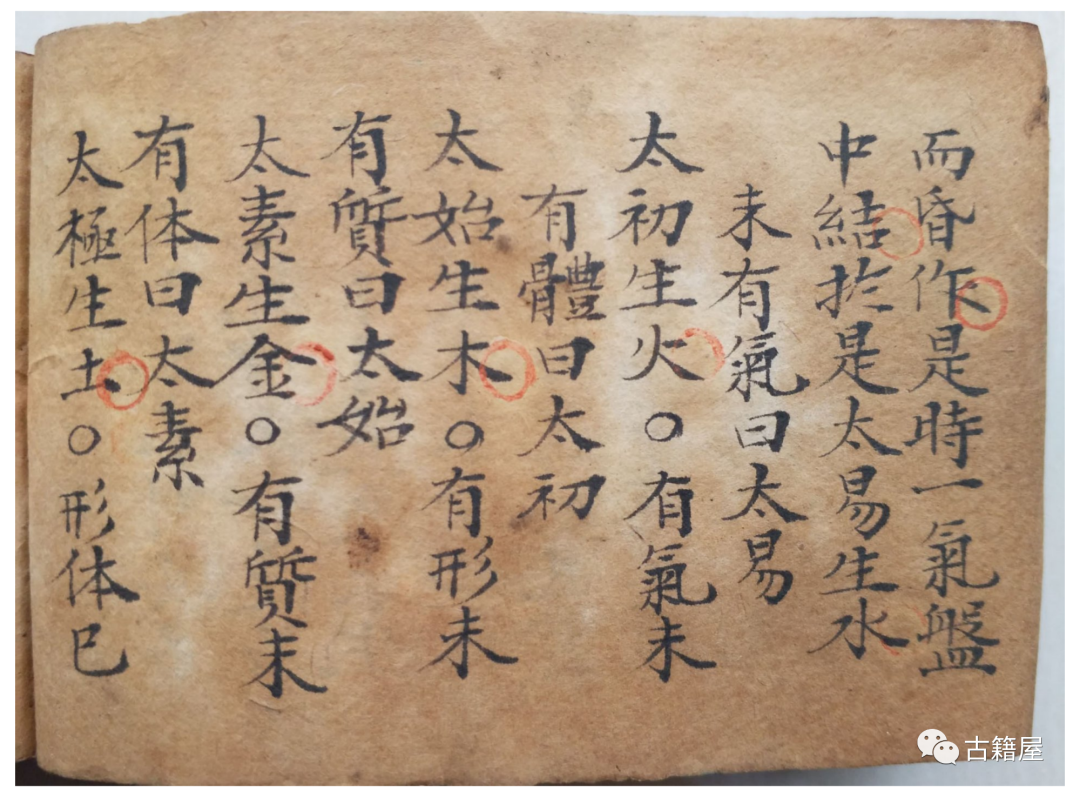 而昏作是時一氣盤
中結於是太易生水
未有氣曰太易
太初生火○有氣未
有體曰太初
太始生木○有形未
有質曰太始
太素生金○有質未
有体曰太素
太極生土○形体巳
古籍屋